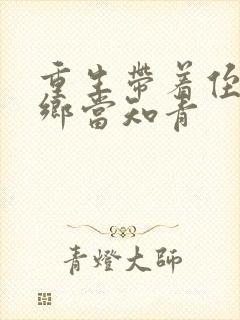 重生帶着侄
鄉當知青
青燈大師